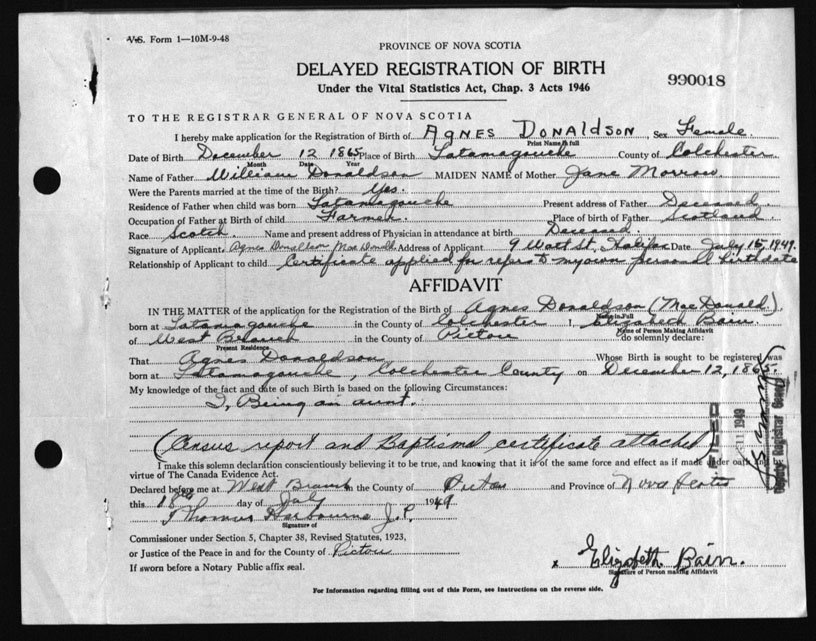 V.S. Form 1—10M-9-48
PROVINCE OF NOVA SCOTIA
DELAYED REGISTRATION OF BIRTH
990018
Under the Vital Statistics Act, Chap. 3 Acts 1946
TO THE REGISTRAR GENERAL OF NOVA SCOTIA
I hereby make application for the Registration of Birth of AGNES DONALDSON, Sex Female.
Print Name in full
Date of Birth December 12 1865 Place of Birth Tatamagouche County of Colchester
Month Date Year
Name of Father William Donaldson MAIDEN NAME of Mother Jane Morrow
Were the Parents married at the time of the Birth? Yes.
Residence of Father when child was born Tatamagouche Present address of Father Deceased.
Occupation of Father at Birth of child Farmer. Place of birth of Father Scotland
Race Scotch Name and present address of Physician in attendance at birth Deceased.
Signature of Applicant Agnes Donaldson MacDonald Address of Applicant 9 Watt St, Halifax Date July 15, 1949.
Relationship of Applicant to child Certificate applied for refers to my own personal birthdate
AFFIDAVIT
IN THE MATTER of the application for the Registration of the Birth of Agnes Donaldson (MacDonald)
Name in Full
born at Tatamagouche in the County of Colchester I, Elizabeth Bain.
Name of Person Making Affidavit
of West Branch in the County of Pictou do solemnly declare:
Present Residence
That Agnes Donaldson Whose Birth is sought to be registered was
born at Tatamagouche, Colchester County on December 12, 1865.
My knowledge of the fact and date of such Birth is based on the following Circumstances:
I, Being an aunt.
(Census report and Baptismal certificate attached)
FILED
1949
Deputy Registrar General
I make this solemn declaration conscientiously believing it to be true, and knowing that it is of the same force and effect as if made under oath and
virtue of The Canada Evidence Act.
Declared before me at West Branch in the County of Pictou and Province of Nova Scotia
this 18th day of July 1949
Thomas Harbourne J.P.
Signature of
Commissioner under Section 5, Chapter 38, Revised Statutes, 1923,
or Justice of the Peace in and for the County of Pictou
If sworn before a Notary Public affix seal.
x Elizabeth Bain.
Signature of Person making Affidavit
For Information regarding filling out of this Form, see Instructions on the reverse side.